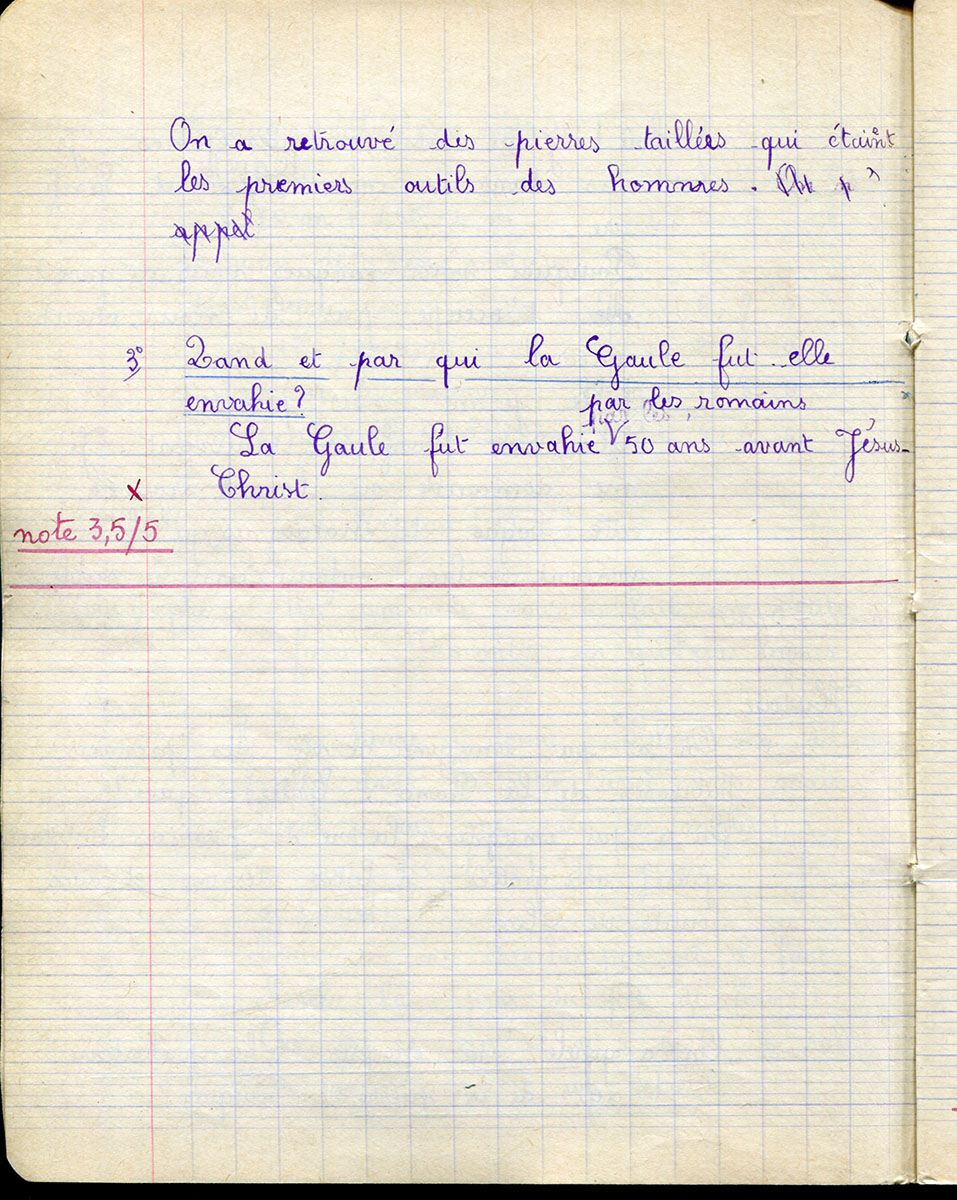 On a retrouvé des pierres taillées qui étaient
les premiers outils des hommres.
appel
3° Qand et par qui la Gaule fut elle
envahie?
par les romains
La Gaule fut envahie V 50 ans avant Jésus-
x Christ.
note 3,5/5